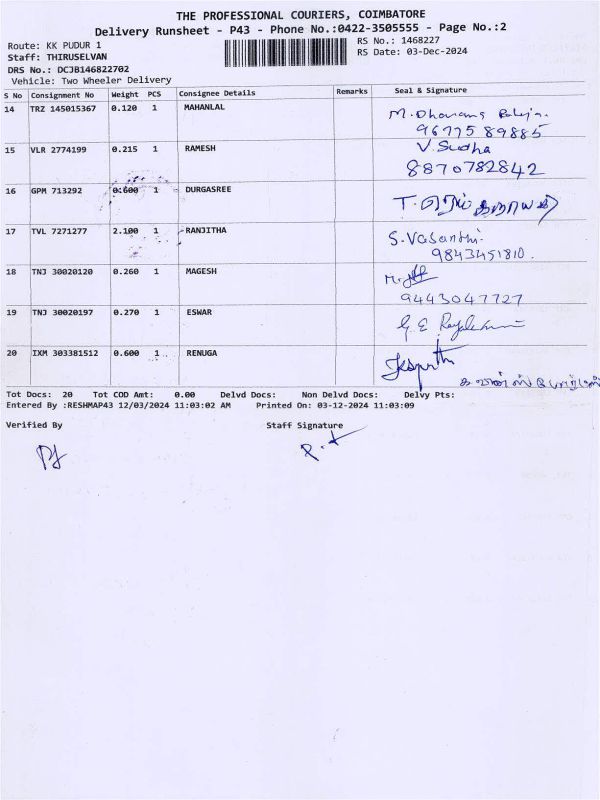 THE PROFESSIONAL COURIERS, COIMBATORE
Delivery Runsheet - P43 - Phone No.:0422-3505555 - Page No.:2
Route: KK PUDUR 1 RS No.: 1468227
Staff: THIRUSELVAN RS Date: 03-Dec-2024
DRS No.: DCJB146822702
Vehicle: Two Wheeler Delivery
S No Consignment No Weight PCS Consignee Details Remarks Seal & Signature
14 TRZ 145015367 0.120 1 MAHANLAL M.
96775 89885
15 VLR 2774199 0.215 1 RAMESH V. Sudha
8870782842
16 GPM 713292 0.600 1 DURGASREE T.
17 TVL 7271277 2.100 1 RANJITHA S. Vasanthi.
9843451810.
18 TNJ 30020120 0.260 1 MAGESH M.
9443047727
19 TNJ 30020197 0.270 1 ESWAR G. E
20 IXM 303381512 0.600 1 RENUGA
Tot Docs: 20 Tot COD Amt: 0.00 Delvd Docs: Non Delvd Docs: Delvy Pts:
Entered By :RESHMAP43 12/03/2024 11:03:02 AM Printed On: 03-12-2024 11:03:09
Verified By Staff Signature